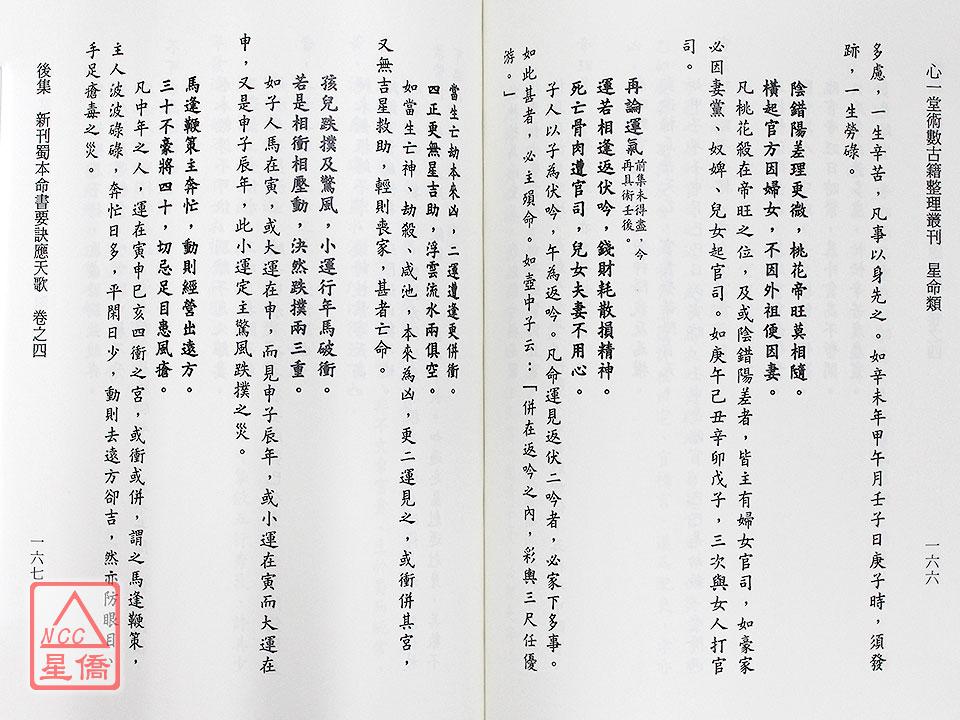 心一堂術數古籍整理叢刊　星命類
一六六
多慮，一生辛苦，凡事以身先之。如辛未年甲午月壬子日庚子時，須發
跡，一生勞碌。
陰錯陽差理更微，桃花帝旺莫相隨。
橫起官方因婦女，不因外祖便因妻。
凡桃花殺在帝旺之位，及或陰錯陽差者，皆主有婦女官司，如豪家
必因妻黨、奴婢、兒女起官司。如庚午己丑辛卯戊子，三次與女人打官
司。
再論運氣 前集未得盡，今
再具術壬後。
運若相逢返伏吟，錢財耗散損精神。
死亡骨肉遭官司，兒女夫妻不用心。
子人以子為伏吟，午為返吟。凡命運見返伏二吟者，必家下多事。
如此甚者，必主殞命。如壺中子云：「併在返吟之內，彩輿三尺任優
游。」
當生亡劫本來凶，二運遭逢更併衝。
四正更無星吉助，浮雲流水兩俱空。
如當生亡神、劫殺、咸池，本來為凶，更二運見之，或衝併其宮，
又無吉星救助，輕則喪家，甚者亡命。
孩兒跌撲及驚風，小運行年馬破衝。
若是相衝相壓動，決然跌撲兩三重。
如子人馬在寅，或大運在申，而見申子辰年，或小運在寅而大運在
申，又是申子辰年，此小運定主驚風跌撲之災。
馬逢鞭策主奔忙，動則經營出遠方。
三十不豪將四十，切忌足目患風瘡。
凡中年之人，運在寅申巳亥四衝之宮，或衝或併，謂之馬逢鞭策，
主人波波碌碌，奔忙日多，平閑日少，動則去遠方卻吉，然亦防眼目、
手足瘡毒之災。
後集　新刊蜀本命書要訣應天歌　卷之四
一六七
NCC
星僑